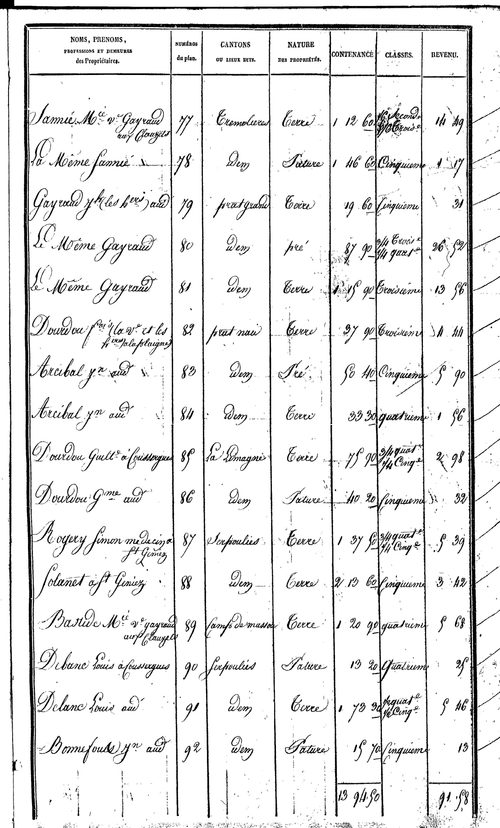 NOMS, PRENOMS, PROFESSIONS ET DEMEURES des Propriétaires. NUMÉROS du plan. CANTONS OU LIEUX DITS. NATURE DES PROPRIÉTÉS. CONTENANCE CLASSES. REVENU.
Vve Gayraud 77 Tremolieres Terre 1 12 60 14 49
La Même 78 idem Pature 1 46 60 Cinquieme 1 17
Gayraud (les hers) aud 79 prat grand Terre 19 60 Cinquieme 31
Le Même Gayraud 80 idem pré 87 90 36 52
Le Même Gayraud 81 idem Terre 1 15 90 Troisième 13 56
Dourdou la Ve et les 82 Terre 37 90 Troisième 4 44
Arcibal Jn aud 83 idem Pré 50 40 Cinquieme 5 90
Arcibal Jn aud 84 idem Terre 33 30 quatrieme 1 56
Dourdou Guille à Coussergues 85 Terre 75 90 3/4 quate 1/4 Cinqe 2 98
Dourdou Gme aud 86 idem Pature 40 20 Cinquieme 32
Rogery Simon medecin a St Geniez 87 Serpoulies Terre 1 37 50 3/4 quate 1/4 Cinqe 5 39
Solanet à St Geniez 88 idem Terre 2 13 60 Cinquieme 3 42
Bastide Mie ve gayraud 89 Terre 1 20 90 quatrieme 5 68
Debanc Louis à Coussergues 90 Serpoulies Pature 13 20 Quatrieme 25
Delanc Louis aud 91 idem Terre 1 73 30 5 46
Bonnefous Jn aud 92 idem Pature 15 70 Cinquieme 13
13 94 50 91 58